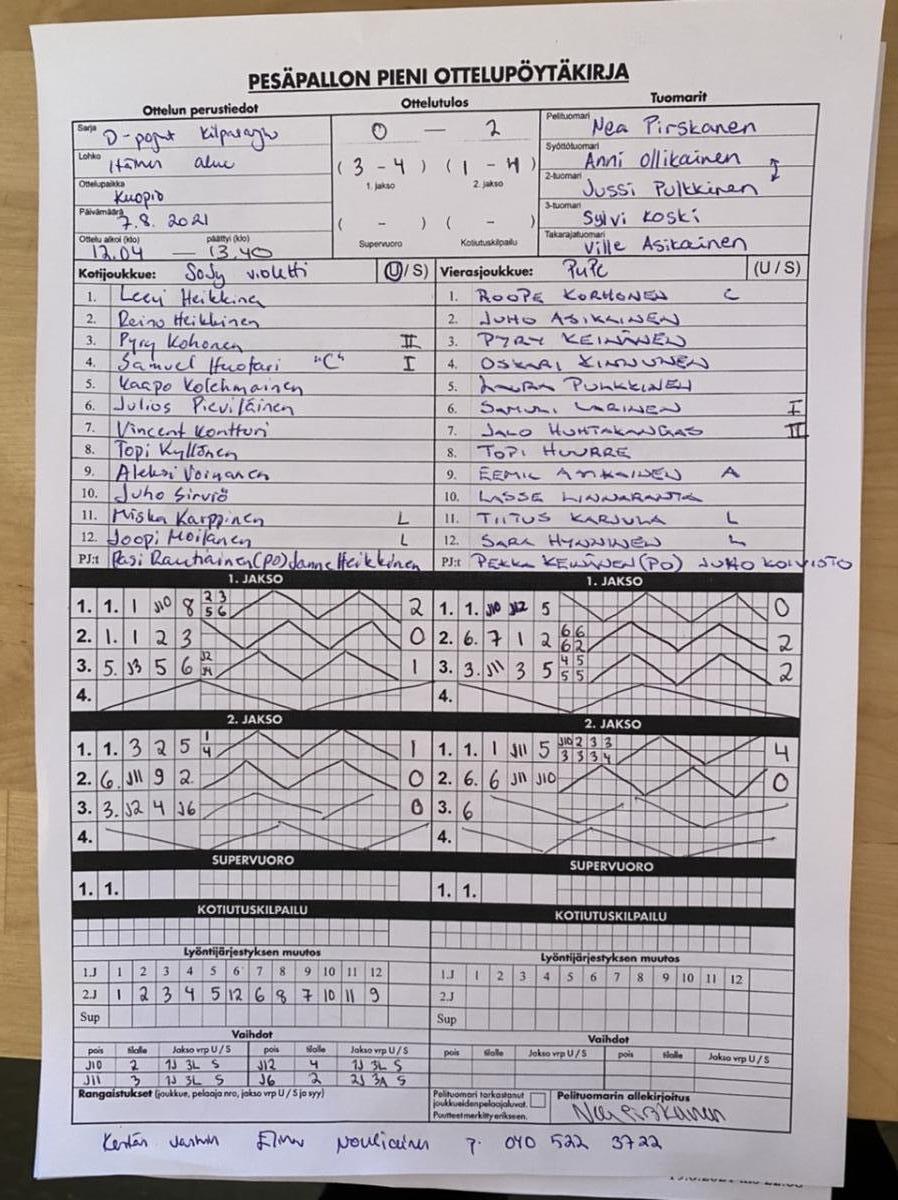 PESÄPALLON PIENI OTTELUPÖYTÄKIRJA
Ottelun perustiedot Ottelutulos Tuomarit
Sarja D-pojat
Lohko Itäinen alue
Ottelupaikka Kuopio
Päivämäärä 7.8. 2021
Ottelu alkoi (klo) päättyi (klo)
12.04 — 13.40
0 — 2
( 3 - 4 ) ( 1 - 4 )
1. jakso 2. jakso
( - ) ( - )
Supervuoro Kotiutuskilpailu
Pelituomari Nea Pirskanen
Syöttötuomari Anni Ollikainen
2-tuomari Jussi Pulkkinen
3-tuomari Sylvi Koski
Takarajatuomari Ville Asikainen
Kotijoukkue: SoJy violetti (U/ S)
1. Leevi Heikkinen
2. Reino Heikkinen
3. Pyry Kohonen II
4. Samuel Huotari "C" I
5. Kaapo Kolehmainen
6. Julius Pieviläinen
7. Vincent Kontturi
8. Topi Kyllönen
9. Aleksi Voinanen
10. Juho Sirviö
11. Miska Karppinen L
12. Joopi Moilanen L
PJ:t Pasi Rautiainen (PO) Janne Heikkinen
Vierasjoukkue: PuPe (U / S)
1. ROOPE KORHONEN C
2. JUHO ASIKAINEN
3. PYRY KEINÄNEN
4. OSKARI KINNUNEN
5. LAURA PULKKINEN
6. SAMULI LARINEN I
7. JALO HUHTAKANGAS II
8. TOPI HUURRE
9. EEMIL A
10. LASSE LINNARANTA
11. TIITUS KARJULA L
12. SARA HYNNINEN L
PJ:t PEKKA KEINÄNEN (PO) JUHO KOIVISTO
1. JAKSO
1. 1. 1 J10 8 2 3 2
5 6
2. 1. 1 2 3 0
3. 5. J3 5 6 J2 1
J4
4.
1. JAKSO
1. 1. J10 J12 5 0
2. 6. 7 1 2 6 6 2
6 2
3. 3. J11 3 5 4 5 2
5 5
4.
2. JAKSO
1. 1. 3 2 5 1 1
4
2. 6. J11 9 2 0
3. 3. J2 4 J6 0
4.
2. JAKSO
1. 1. 1 J11 5 J10 2 3 3 4
3 3 3 4
2. 6. 6 J11 J10 0
3. 6
4.
SUPERVUORO
1. 1.
SUPERVUORO
1. 1.
KOTIUTUSKILPAILU
KOTIUTUSKILPAILU
Lyöntijärjestyksen muutos
1.J 1 2 3 4 5 6 7 8 9 10 11 12
2.J 1 2 3 4 5 12 6 8 7 10 11 9
Sup
Lyöntijärjestyksen muutos
1.J 1 2 3 4 5 6 7 8 9 10 11 12
2.J
Sup
Vaihdot
pois tilalle Jakso vrp U / S pois tilalle Jakso vrp U / S
J10 2 1J 3L S J12 4 1J 3L S
J11 3 1J 3L S J6 2 2J 3A S
Vaihdot
pois tilalle Jakso vrp U / S pois tilalle Jakso vrp U / S
Rangaistukset (joukkue, pelaaja nro, jakso vrp U / S ja syy)
Pelituomari tarkastanut
joukkueiden pelaajaluvat.
Puutteet merkitty erikseen.
Pelituomarin allekirjoitus
Nea Pirskanen
p. 040 522 3722